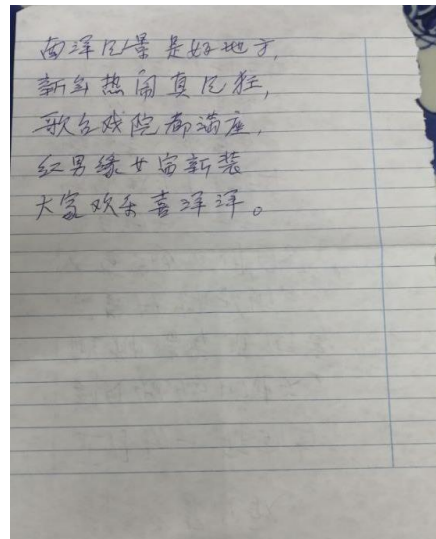 南洋风景是好地方,
新年热闹真疯狂,
歌台戏院都满座,
红男绿女富新装
大家欢乐喜洋洋。